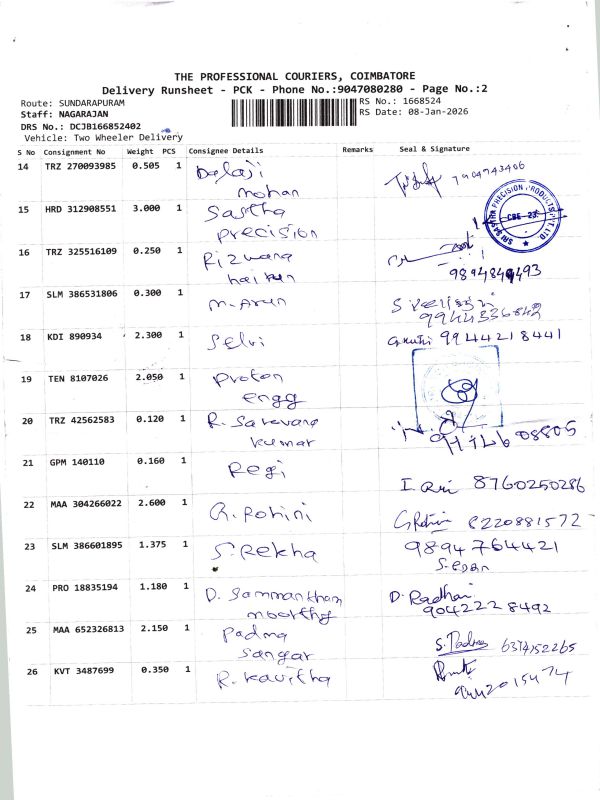 THE PROFESSIONAL COURIERS, COIMBATORE
Delivery Runsheet - PCK - Phone No.:9047080280 - Page No.:2
Route: SUNDARAPURAM
RS No.: 1668524
Staff: NAGARAJAN
RS Date: 08-Jan-2026
DRS No.: DCJB166852402
Vehicle: Two Wheeler Delivery
S No Consignment No Weight PCS Consignee Details Remarks Seal & Signature
14 TRZ 270093985 0.505 1 Balaji mohan 7904743406
15 HRD 312908551 3.000 1 Sastha precision
SRI SASTHA PRECISION PRODUCTS PVT LTD
CBE-23
16 TRZ 325516109 0.250 1 Rizwana
17 SLM 386531806 0.300 1 M. Arun 9944336842
18 KDI 890934 2.300 1 Selvi 9944218441
19 TEN 8107026 2.050 1 Proton engg
20 TRZ 42562583 0.120 1 R. Saravana kumar
21 GPM 140110 0.160 1 Regi 8760250286
22 MAA 304266022 2.600 1 G. Rohini 8220881572
23 SLM 386601895 1.375 1 S. Rekha 9894764421
24 PRO 18835194 1.180 1 D. Sammantham moorthy D. Radhai 9042228492
25 MAA 652326813 2.150 1 Padma Sangar S. Padma 6374152265
26 KVT 3487699 0.350 1 R. Kavitha